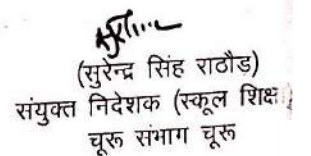 (सुरेन्द्र सिंह राठौड़)
संयुक्त निदेशक (स्कूल शिक्षा)
चूरू संभाग चूरू